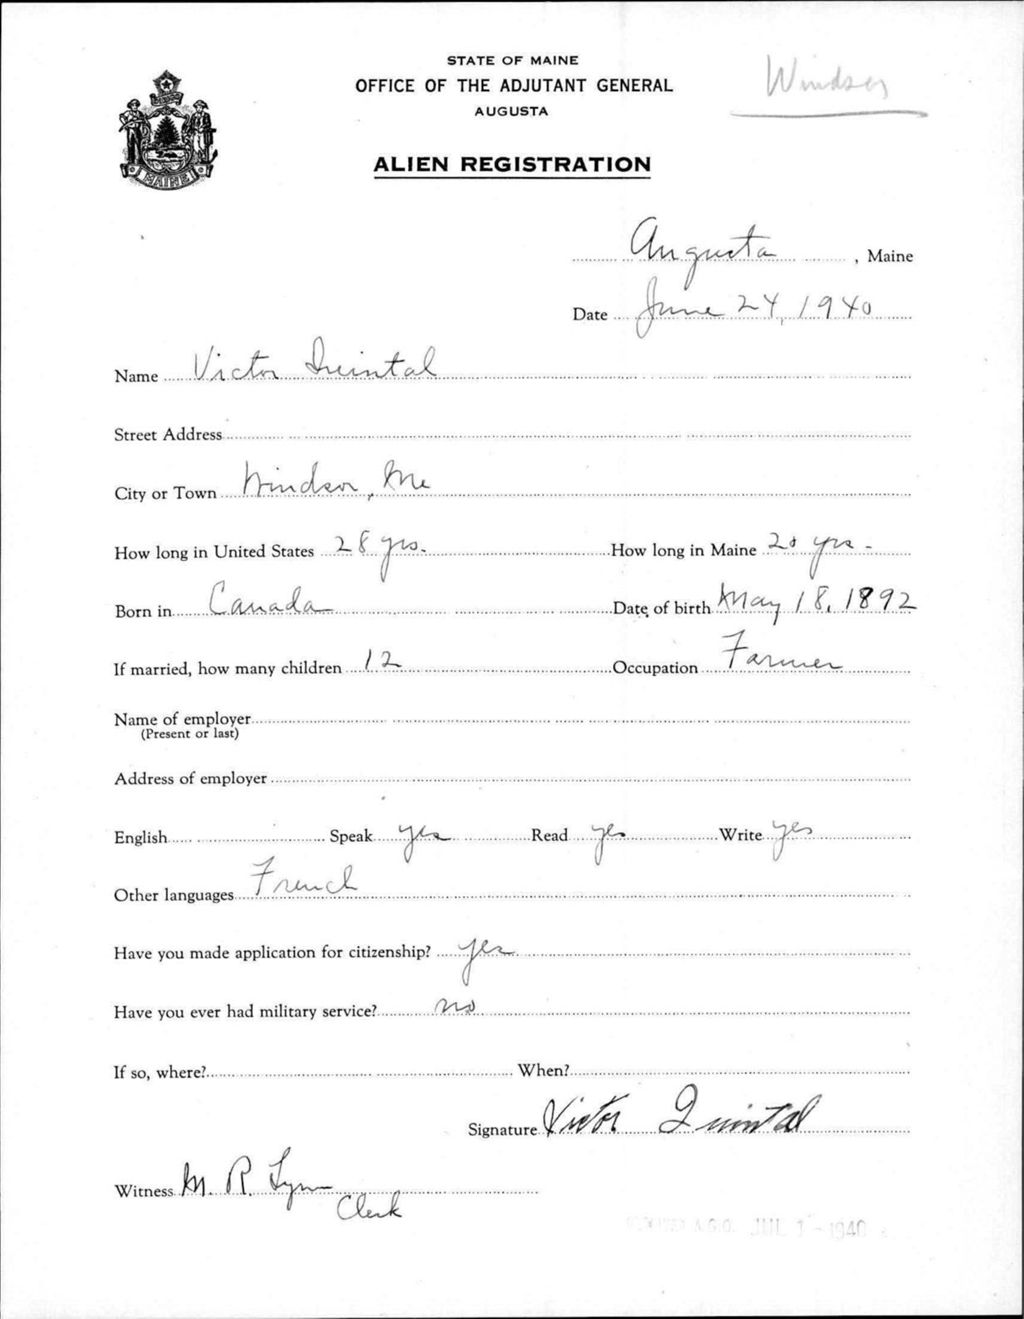 STATE OF MAINE
OFFICE OF THE ADJUTANT GENERAL
AUGUSTA
Windsor
MAINE
ALIEN REGISTRATION
Augusta, Maine
Date June 24, 1940
Name Victor Quintal
Street Address
City or Town Windsor, Me
How long in United States 28 yrs. How long in Maine 20 yrs.
Born in Canada Date of birth May 18, 1892
If married, how many children 12 Occupation Farmer
Name of employer
(Present or last)
Address of employer
English Speak yes Read yes Write yes
Other languages French
Have you made application for citizenship? yes
Have you ever had military service? no
If so, where? When?
Signature Victor Quintal
Witness M. R. Lynn
Clerk
A.G.O. JUL 1 - 1940